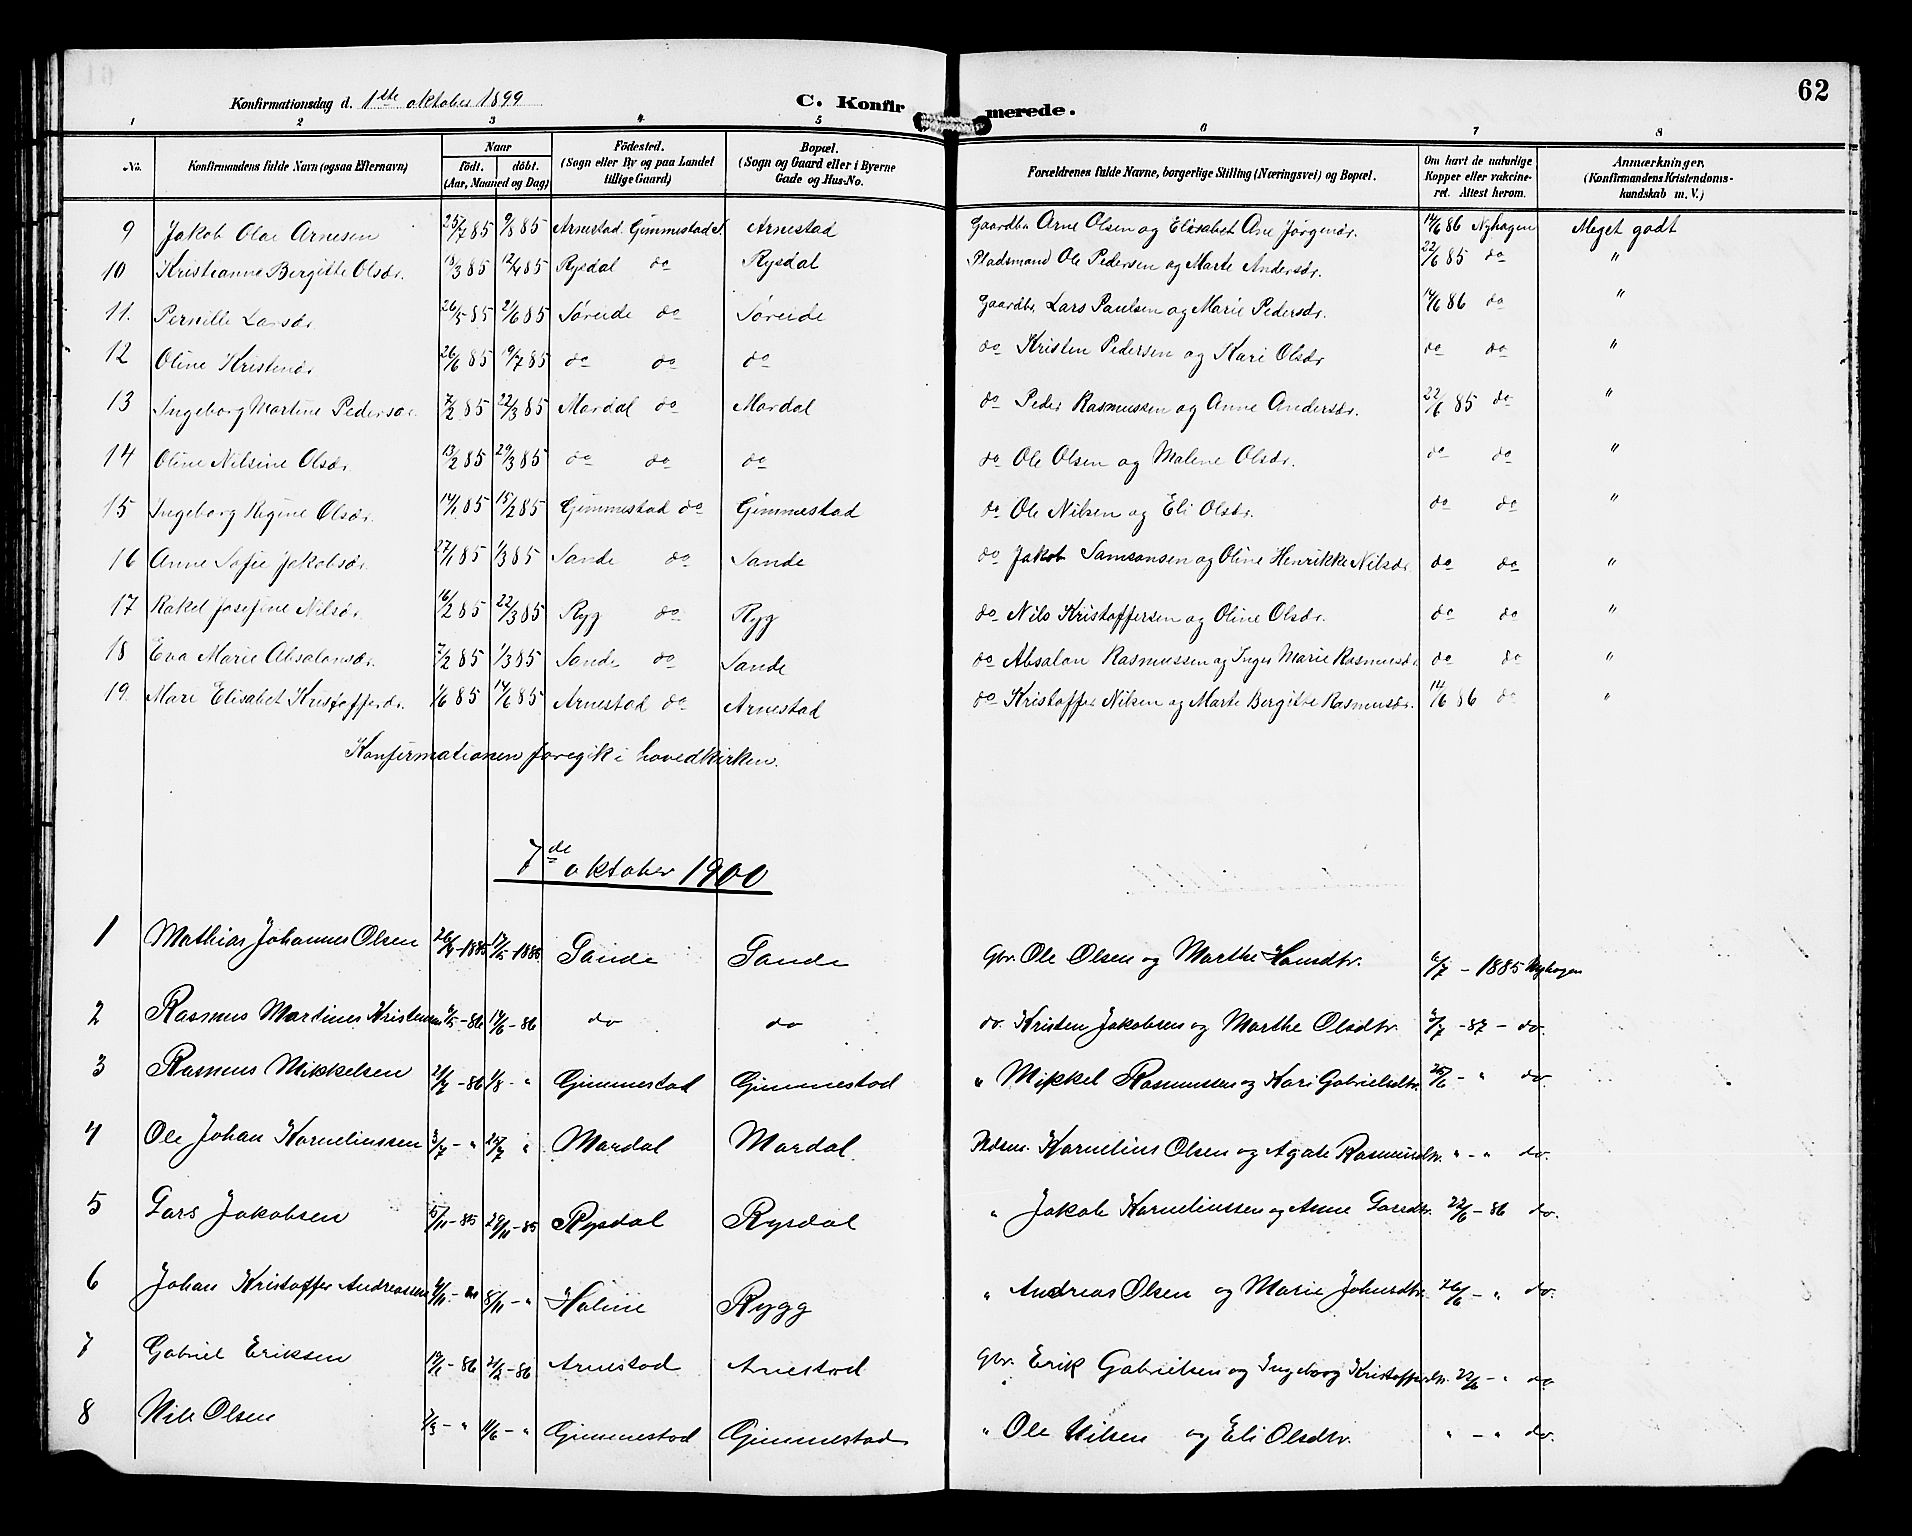 62
Konfirmationsdag d. 1ste oktober 1899 C. Konfir merede.
1 2 3 4 5 6 7 8
No. Konfirmandens fulde Navn (ogsaa Efternavn) Naar födt. döbt. (Aar, Maaned og Dag) Födested. (Sogn eller By og paa Landet tillige Gaard) Bopæl. (Sogn og Gaard eller i Byerne Gade og Hus-No. Forældrenes fulde Navne, borgerlige Stilling (Næringsvei) og Bopæl. Om havt de naturlige Kopper eller vakcineret. Attest herom. Anmærkninger, (Konfirmandens Kristendomskundskab m. V.)
9 Jakob Olai Arnesen 25/7 85 9/8 85 Arnestad Gimmestad s. Arnestad Gaardbr. Arne Olsen og Elisabet Ane Jørgensdr. 14/6 86 Nyhagen Meget godt
10 Kristianne Bergitte Olsdr. 13/3 85 12/4 85 Rysdal do Rysdal Pladsmand Ole Pedersen og Marte Andersdr. 22/6 85 do "
11. Pernille Larsdr. 26/5 85 21/6 85 Søreide do Søreide Gaardbr. Lars Paulsen og Marie Pedersdr. 14/6 86 do "
12 Oline Kristensdr 26/6 85 19/7 85 do do do do Kristen Pedersen og Kari Olsdr do do "
13 Ingeborg Martine Pedersdr. 7/2 85 22/3 85 Mardal do Mardal do Peder Rasmussen og Anne Andersdr. 22/6 85 do "
14 Oline Nilsine Olsdr. 13/2 85 29/3 85 do do do do Ole Olsen og Malene Olsdr. do do "
15 Ingeborg Regine Olsdr. 14/1 85 15/2 85 Gimmestad do Gimmestad do Ole Nilsen og Eli Olsdr. do do "
16 Anne Sofie Jakobsdr. 27/1 85 1/3 85 Sande do Sande do Jakob Samsonsen og Oline Henrikke Nilsdr. do do "
17 Rakel Josefine Nilsdr. 16/2 85 22/3 85 Ryg do Ryg do Nils Kristoffersen og Oline Olsdr. do do "
18 Eva Marie Absalonsdr. 7/2 85 1/3 85 Sande do Sande do Absalon Rasmussen og Inger Marie Rasmusdr. do do "
19. Mari Elisabet Kristofferdr. 1/6 85 14/6 85 Arnestad do Arnestad do Kristoffer Nilsen og Marte Bergitte Rasmusdr. 14/6 86 do "
Konfirmationen foregik i hovedkirken.
7de oktober 1900
1 Mathias Johannes Olsen 1885 1885 Sande Sande Gbr. Ole Olsen og Marthe Hansdtr. 6/7 - 1885 Nyhagen
2 Rasmus Martinus Kristensen - 86 14/6 - 86 do do do. Kristen Jakobsen og Marthe Olsdtr. - 87 - do.
3 Rasmus Mikkelsen - 86 1/8 - " Gimmestad Gimmestad " Mikkel Rasmussen og Kari Gabrielsdtr. 25/6 - " do.
4 Ole Johan Korneliussen 3/7 - " 25/7 " Mardal Mardal. Pldsm. Kornelius Olsen og Agate Rasmusdtr. " - " do.
5 Lars Jakobsen 5/11 - 85 29/11 - 85 Rysdal Rysdal " Jakob Korneliussen og Anne Larsdtr. 22/6 - 86 do.
6 Johan Kristoffer Andreassen 8/11 - " Rygg " Andreas Olsen og Marie Johnsdtr. 26/6 - " do.
7 Gabriel Eriksen 19/1 - 86 21/2 - 86 Arnestad Arnestad Gbr. Erik Gabrielsen og Ingeborg Kristofferdtr. 22/6 - " do
8 Nils Olsen - " - " Gimmestad Gimmestad " Ole Nilsen og Eli Olsdtr. " - " do.